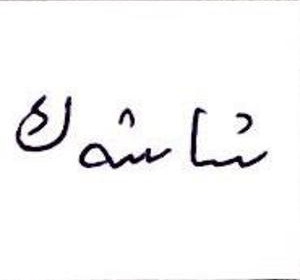 شاشه ك